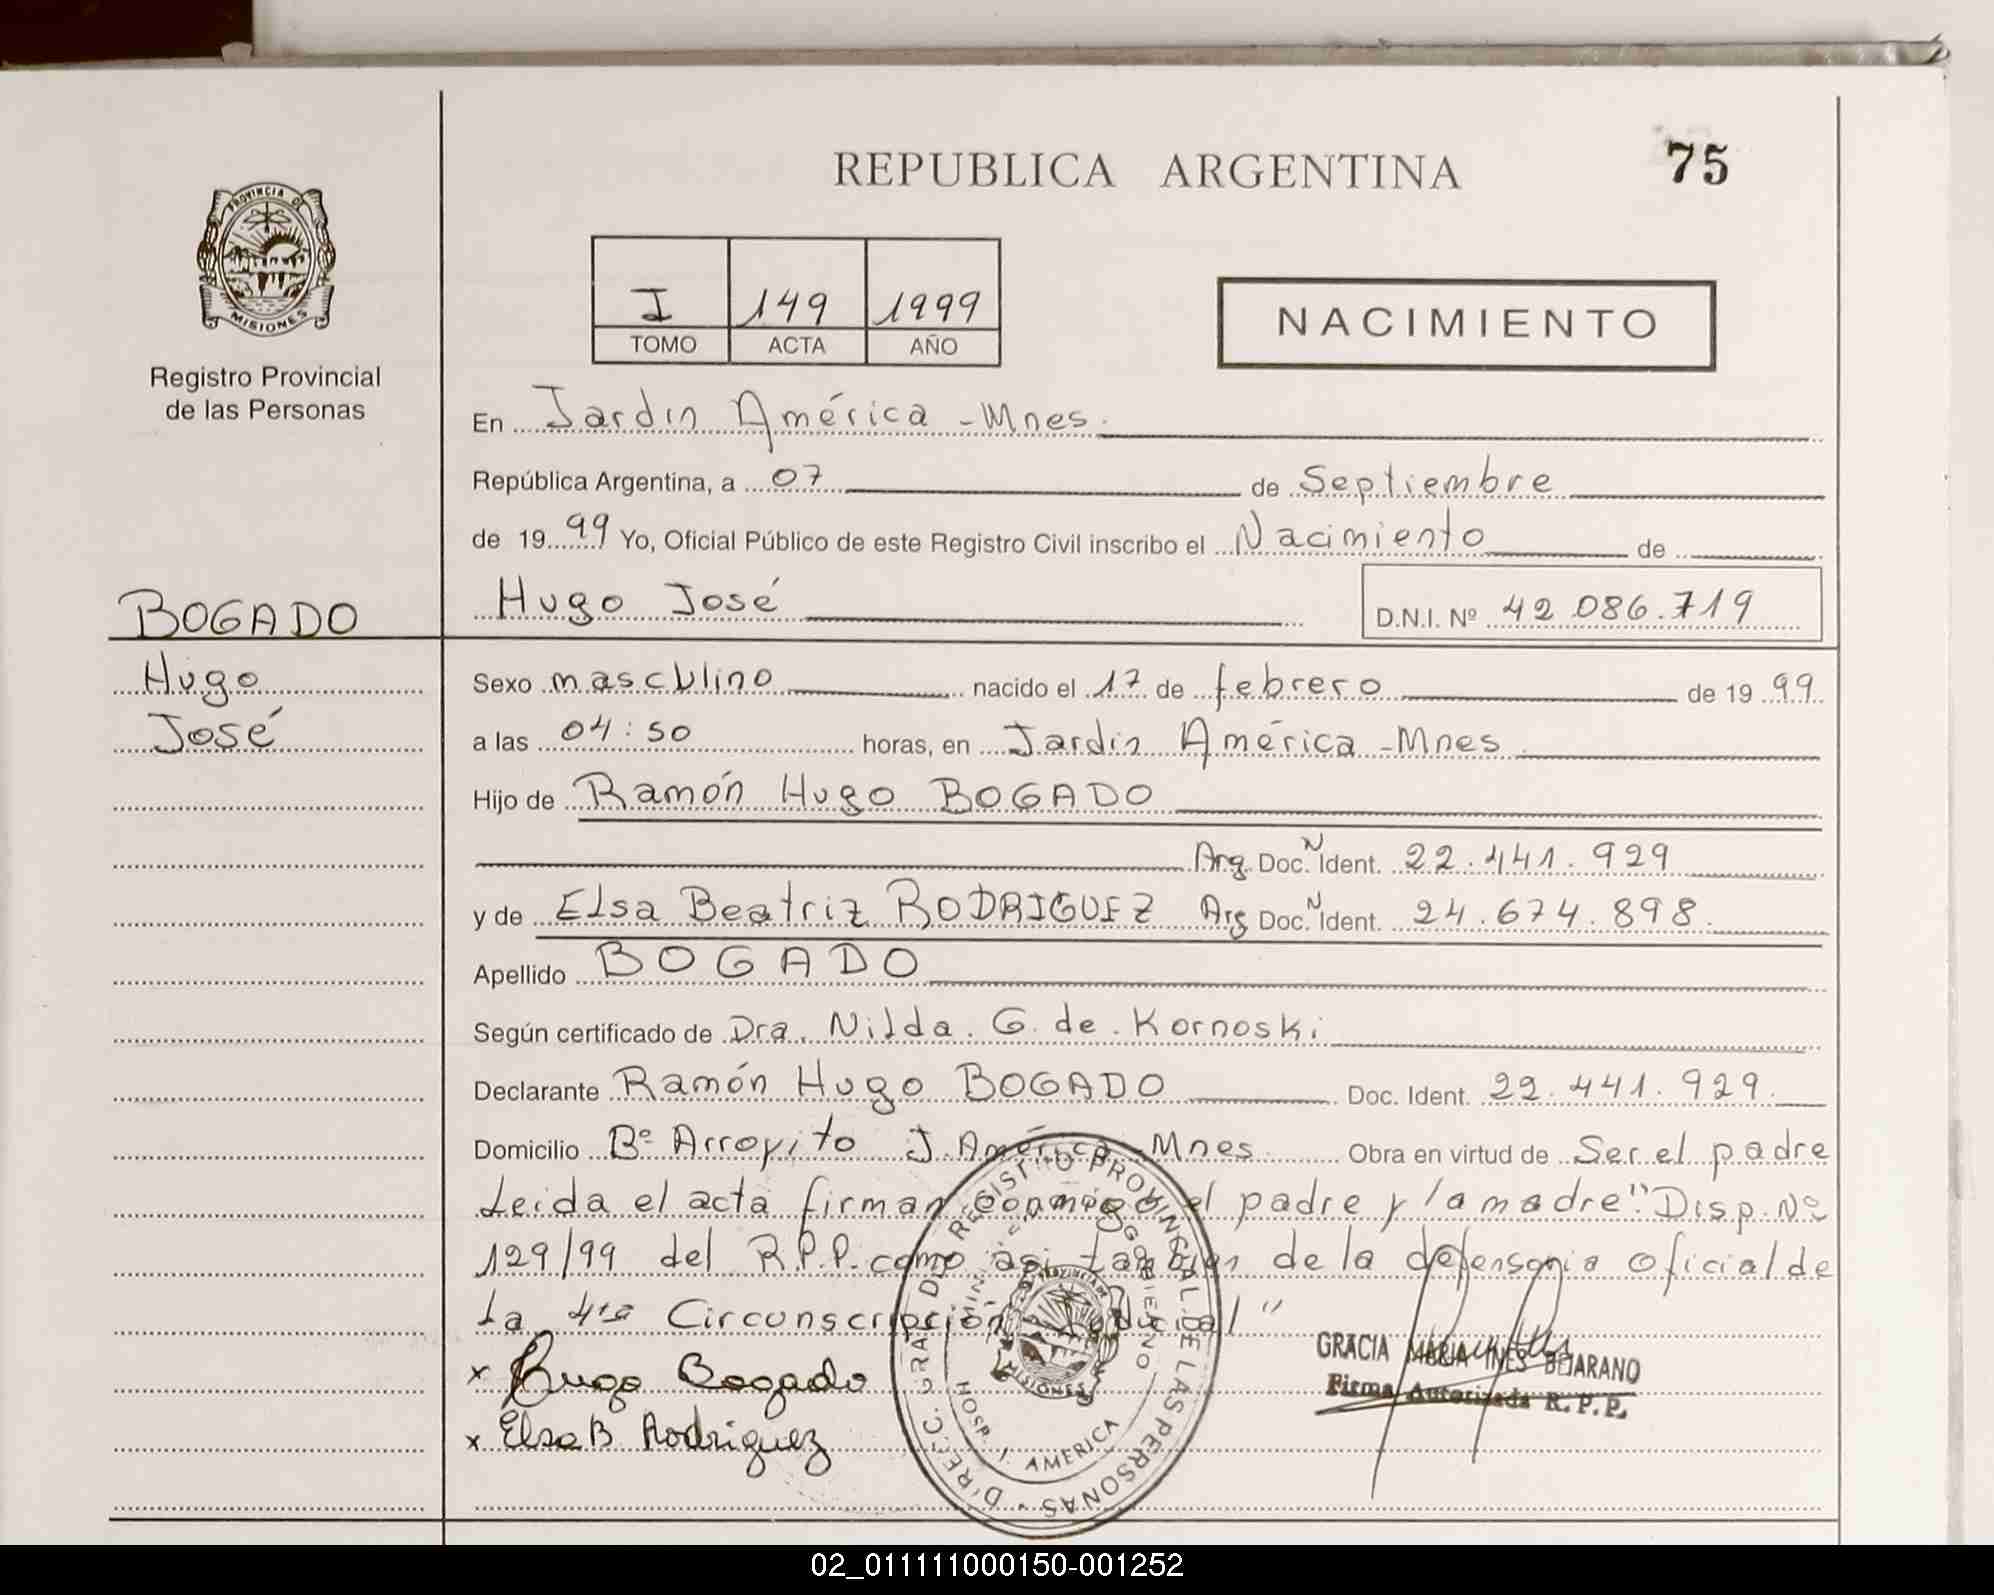 REPUBLICA ARGENTINA
75
PROVINCIA DE
MISIONES
Registro Provincial
de las Personas
I 149 1999
TOMO ACTA AÑO
NACIMIENTO
En Jardin América - Mnes.
República Argentina, a 07 de Septiembre
de 19 99 Yo, Oficial Público de este Registro Civil inscribo el Nacimiento de
BOGADO
Hugo José D.N.I. Nº 42.086.719
Hugo
José
Sexo masculino nacido el 17 de febrero de 19 99
a las 04:50 horas, en Jardin América - Mnes
Hijo de Ramón Hugo BOGADO
Arg. Doc. N Ident. 22.441.929
y de Elsa Beatriz RODRIGUEZ Arg Doc. N Ident. 24.674.898.
Apellido BOGADO
Según certificado de Dra. Nilda. G. de. Kornoski
Declarante Ramón Hugo BOGADO Doc. Ident. 22.441.929.
Domicilio Bº Arroyito J. América - Mnes Obra en virtud de Ser el padre
Leida el acta firman conmigo el padre y la madre "Disp. Nº
129/99 del R.P.P. como asi tambien de la defensoria oficial de
La 4ta Circunscripción Judicial"
x Hugo Bogado
x Elsa B Rodriguez
GRACIA MARIA INES BEJARANO
Firma Autorizada R.P.P.
DIRECC. GRAL DEL REGISTRO PROVINCIAL DE LAS PERSONAS
GOBIERNO
HOSP. J. AMERICA
PROVINCIA DE
MISIONES
02_011111000150-001252